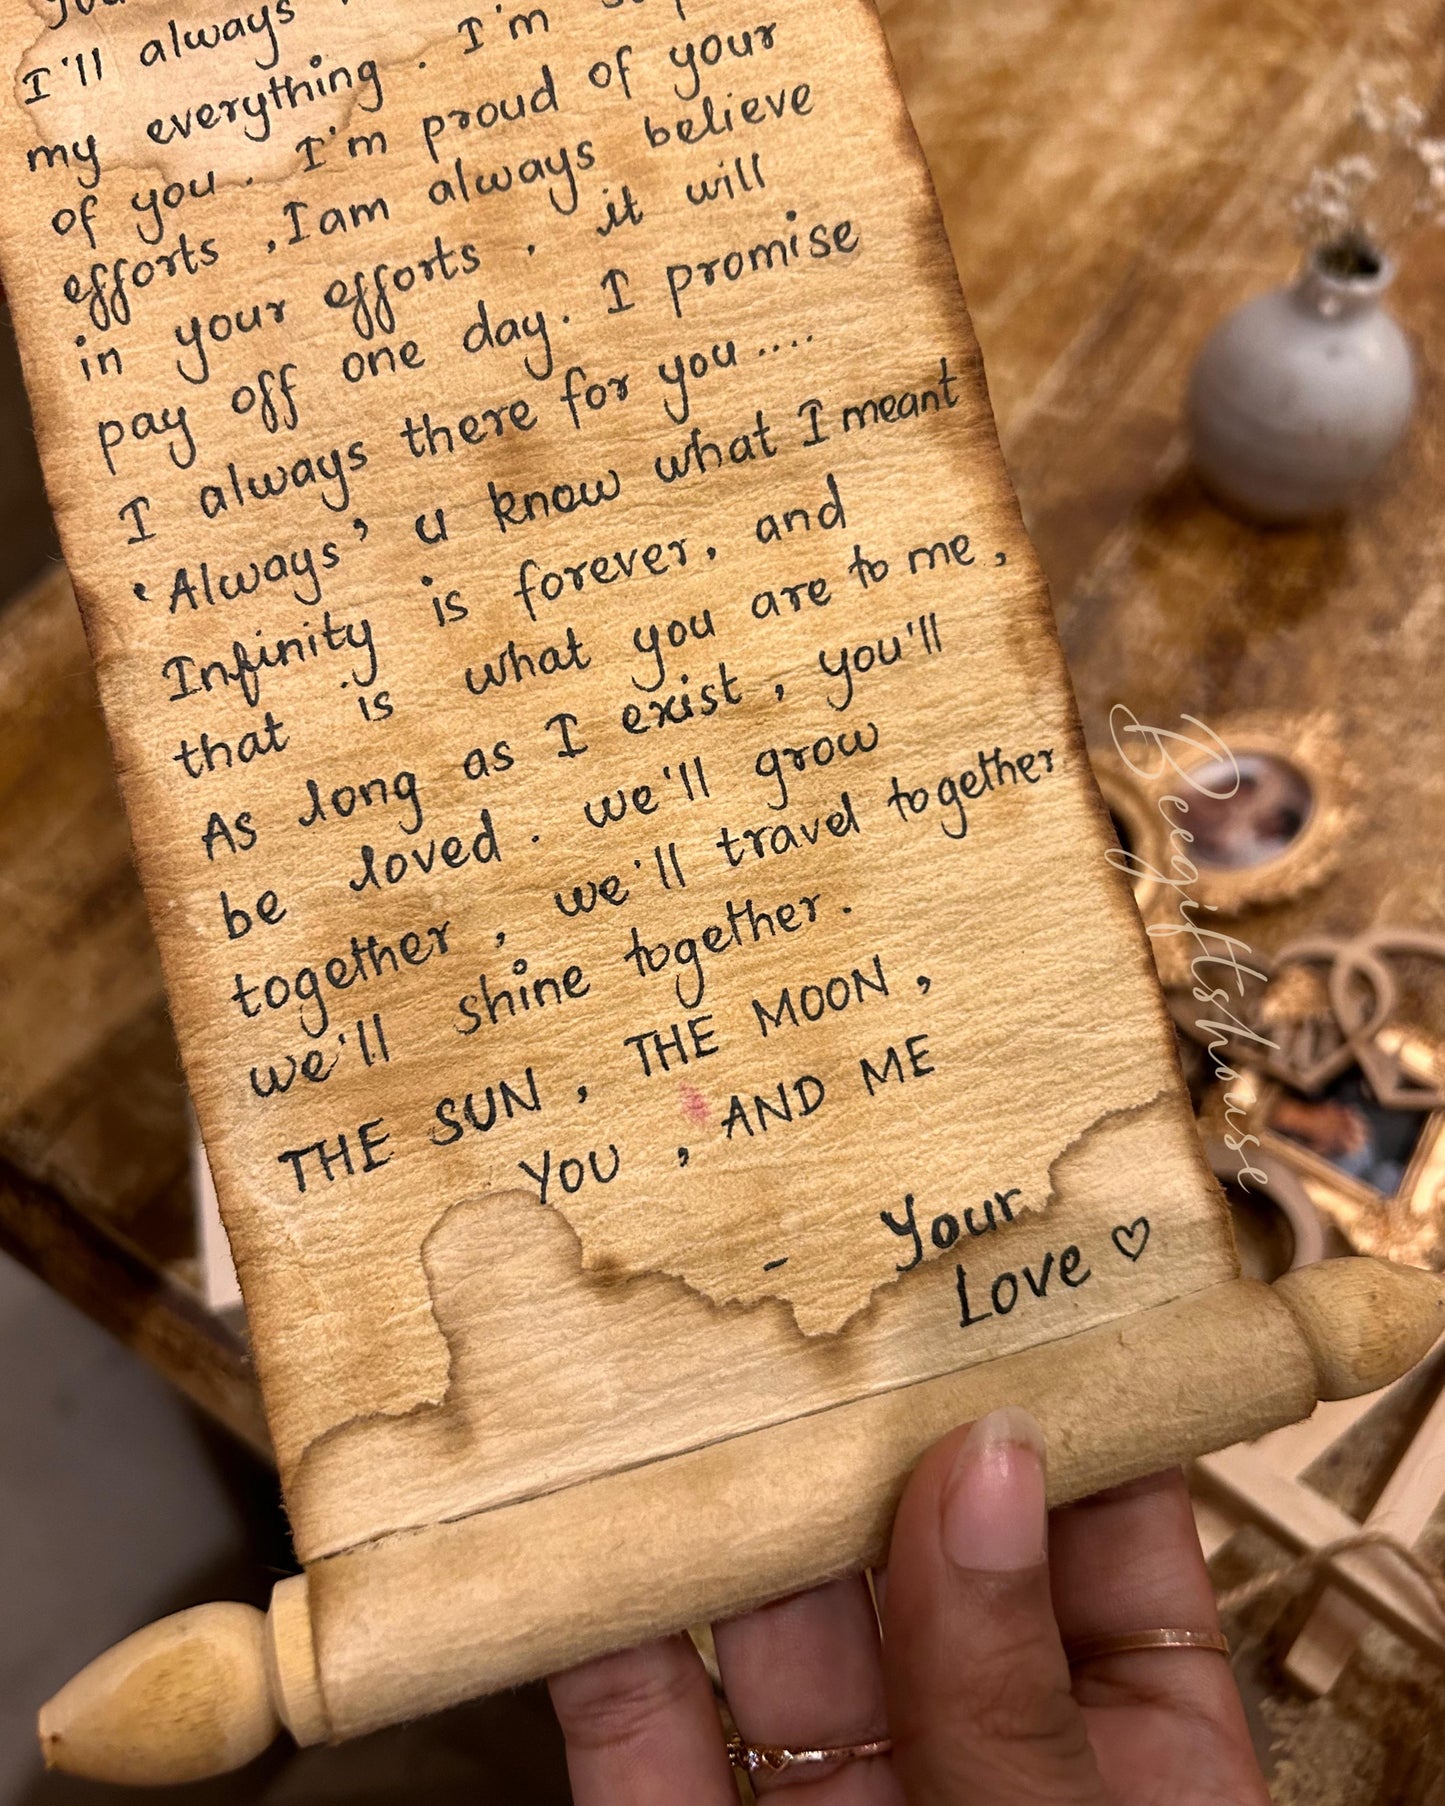 I'll always
my everything. I'm
of you. I'm proud of your
efforts, I am always believe
in your efforts, it will
pay off one day. I promise
I always there for you....
'Always' u know what I meant
Infinity is forever, and
that is what you are to me,
As long as I exist, you'll
be loved. we'll grow
together, we'll travel together
we'll shine together.
THE SUN, THE MOON,
YOU, AND ME
- Your
Love ♡
Beegiftshouse